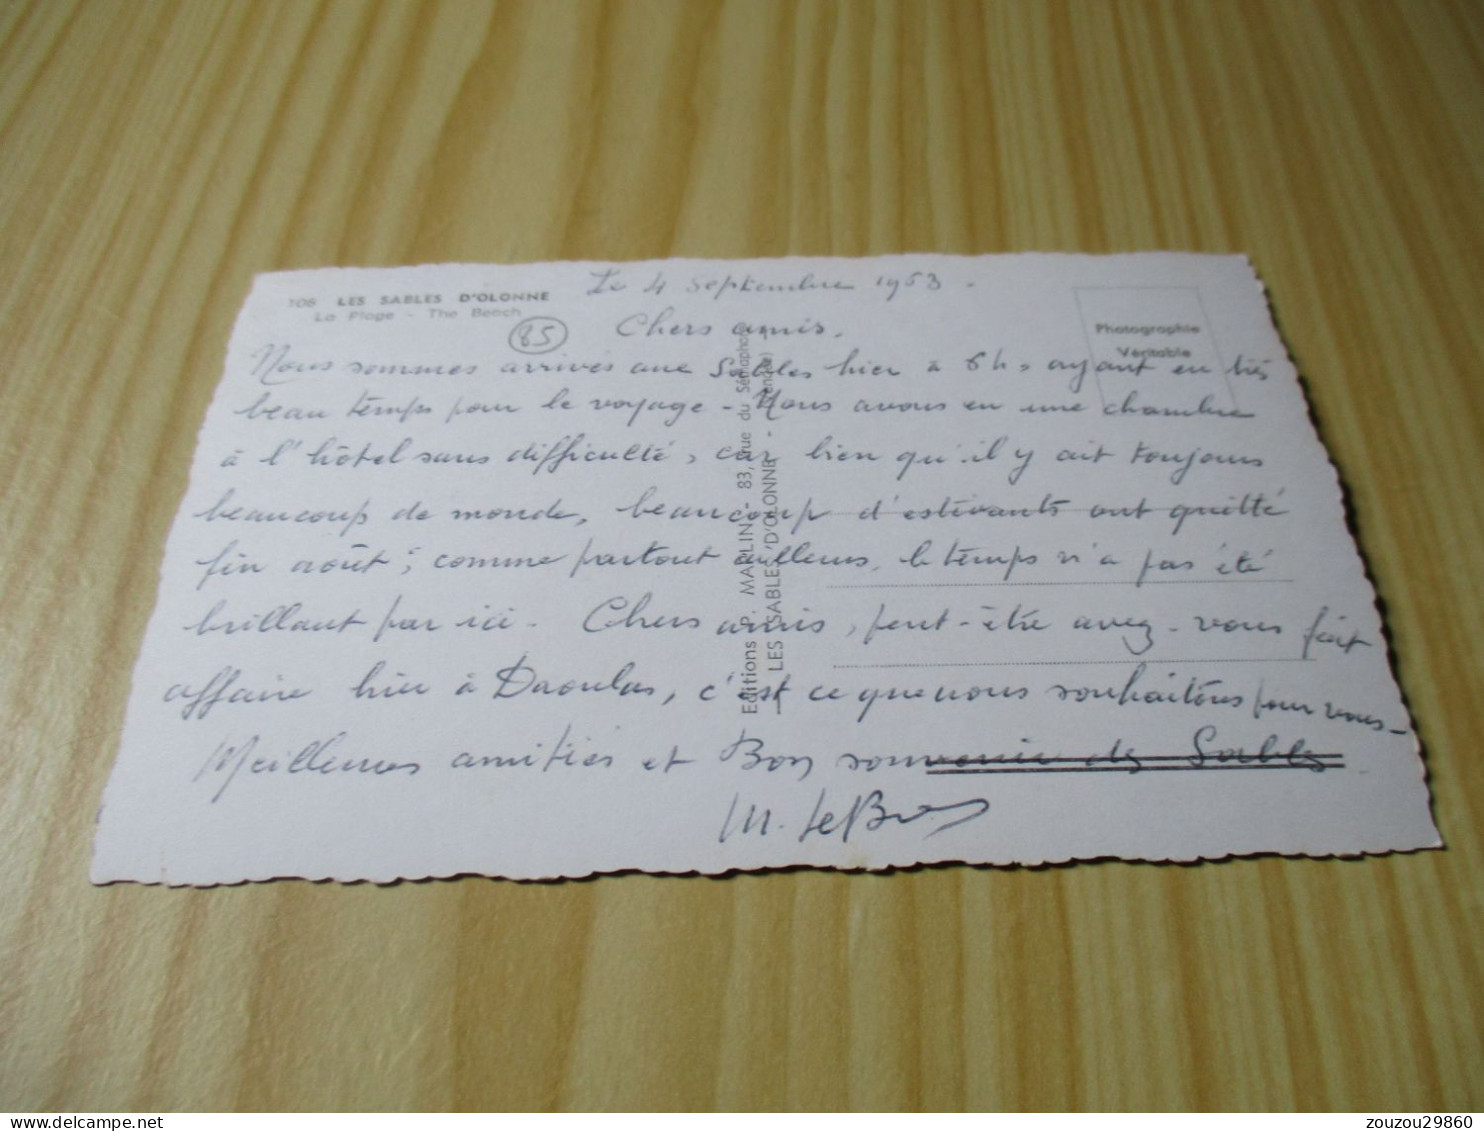 Le 4 Septembre 1963.
106 LES SABLES D'OLONNE
La Plage - The Beach
85
Chers amis,
Photographie
Véritable
Nous sommes arrivés aux Sables hier à 6h, ayant eu très
beau temps pour le voyage - Nous avons eu une chambre
à l'hôtel sans difficulté, car bien qu'il y ait toujours
beaucoup de monde, beaucoup d'estivants ont quitté
fin août ; comme partout ailleurs, le temps n'a pas été
brillant par ici - Chers amis, peut-être avez-vous fait
affaire hier à Daoulas, c'est ce que nous souhaitons pour vous -
Meilleures amitiés et Bon souvenir des Sables
M. LeBras
Editions P. MARLIN - 83, rue du Sémaphore
LES SABLES D'OLONNE - (Vendée)
zouzou29860